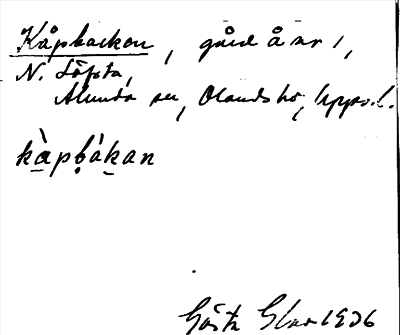 Kåpbacken, gård Å nr 1,
N. Löfsta,
Alunda sn, Olands hd, Upps. l.
kàpbákan
Gösta 1936